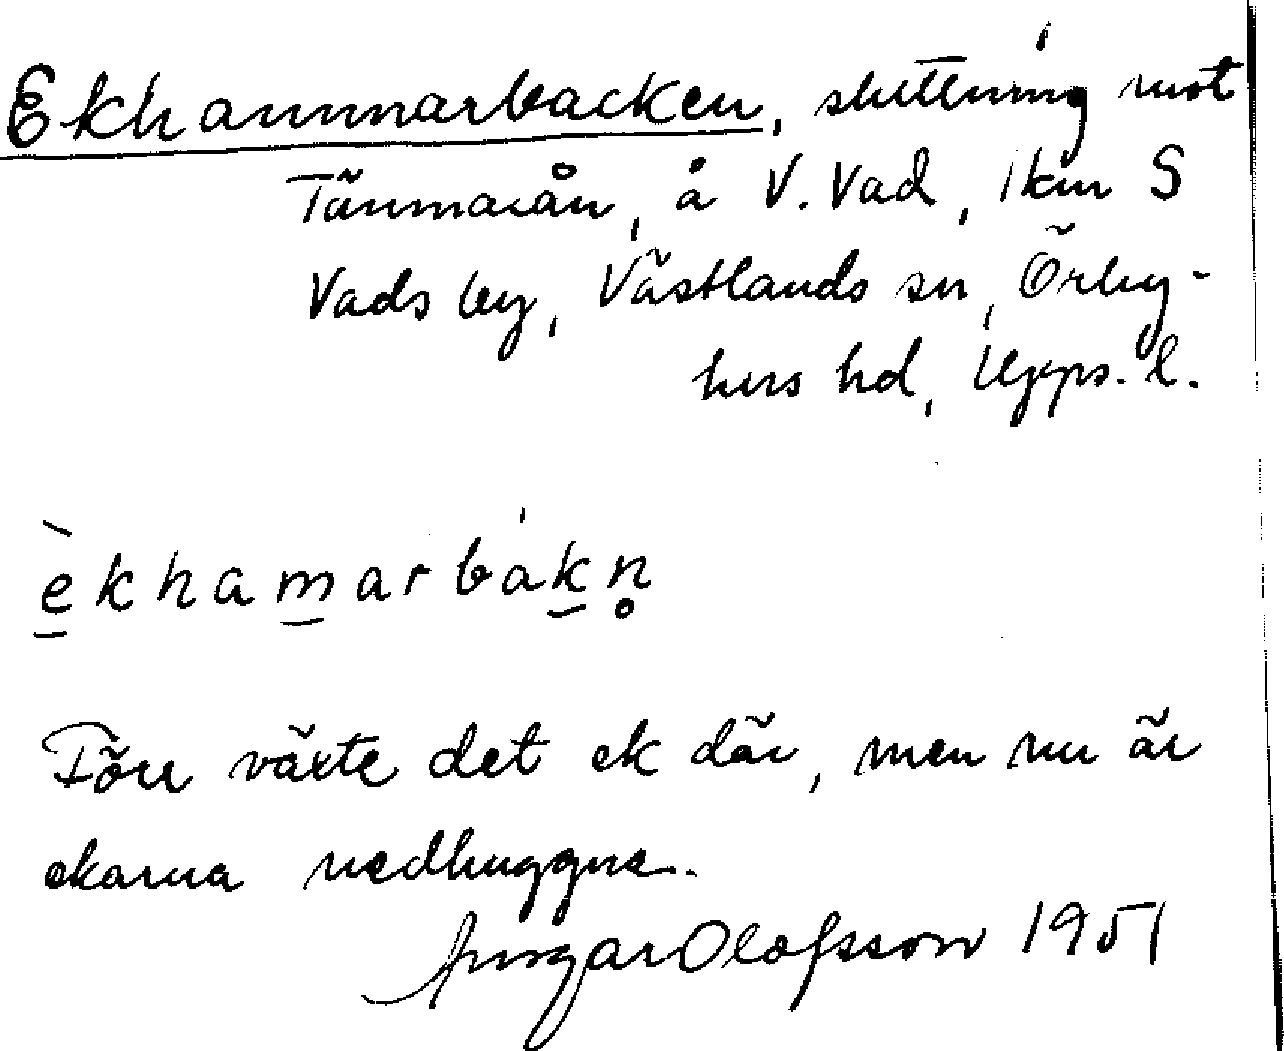 Ekhammarbacken, sluttning mot
Tämnarån, å V. Vad, 1 km S
Vads by, Västlands sn, Örby-
hus hd, Upps. l.
èkhamarbákn̥
Förr växte det ek där, men nu är
ekarna nedhuggna.
Ansgar Olofsson 1951